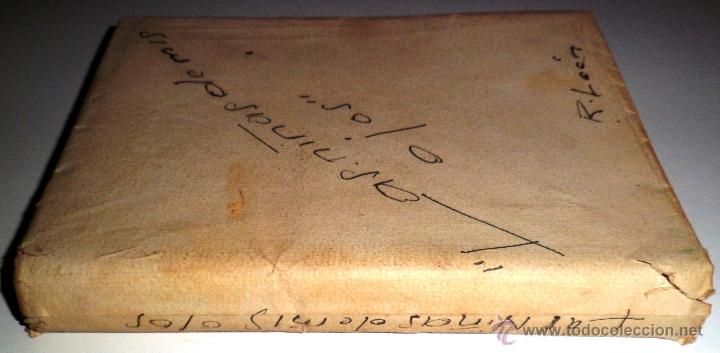 "Las niñas de mis
ojos"
R. León
Las Niñas de mis ojos
© www.todocoleccion.net